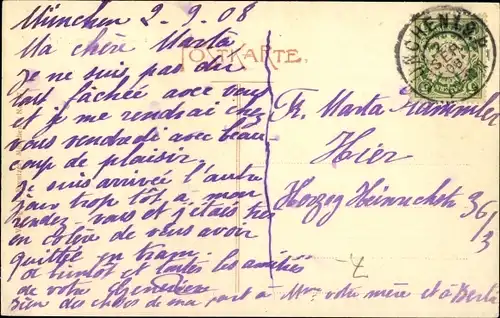 München 2.9.08
Ma chère Marta
POSTKARTE.
Je ne suis pas du
tout fâchée avec vous
et je me rendrai chez
vous vendredi avec beau
coup de plaisir.
Je suis arrivée l'autre
jour trop tôt à mon
rendez-vous et j'étais très
en colère de vous avoir
quittée en tram
A bientôt et toutes les amitiés
de votre
bien des choses de ma part à Mme votre mère et à Berta
MÜNCHEN
2 SEP
08
Frl. Marta
Hier
Herzog Heinrichstr 36/3